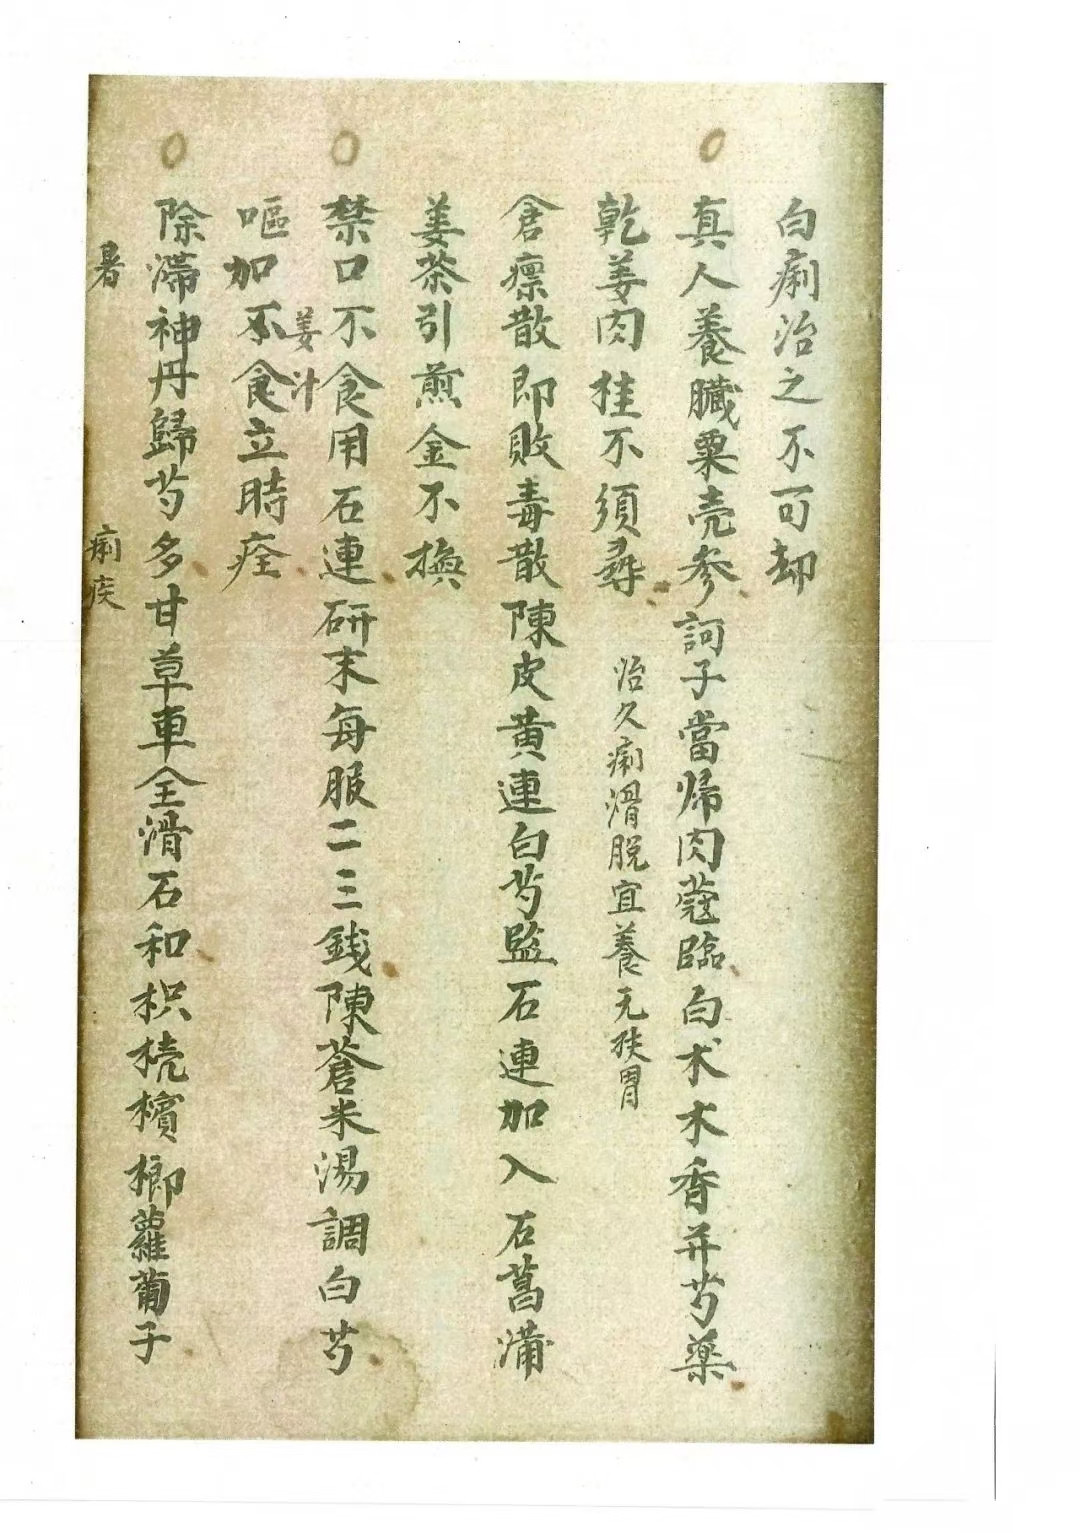 白痢治之不可却
○真人養臟粟壳参訶子當帰肉蔻臨白术木香并芍藥
乾姜肉桂不須尋 治久痢滑脱宜養元扶胃
倉廪散即敗毒散陳皮黄連白芍監石連加入石菖蒲
姜茶引煎金不換
○禁口不食用石連研末每服二三錢陳蒼米湯調白芍
姜汁
嘔加不食立時痊
○除滯神丹歸芍多甘草車全滑石和枳梈檳榔蘿蔔子
暑 痢疾